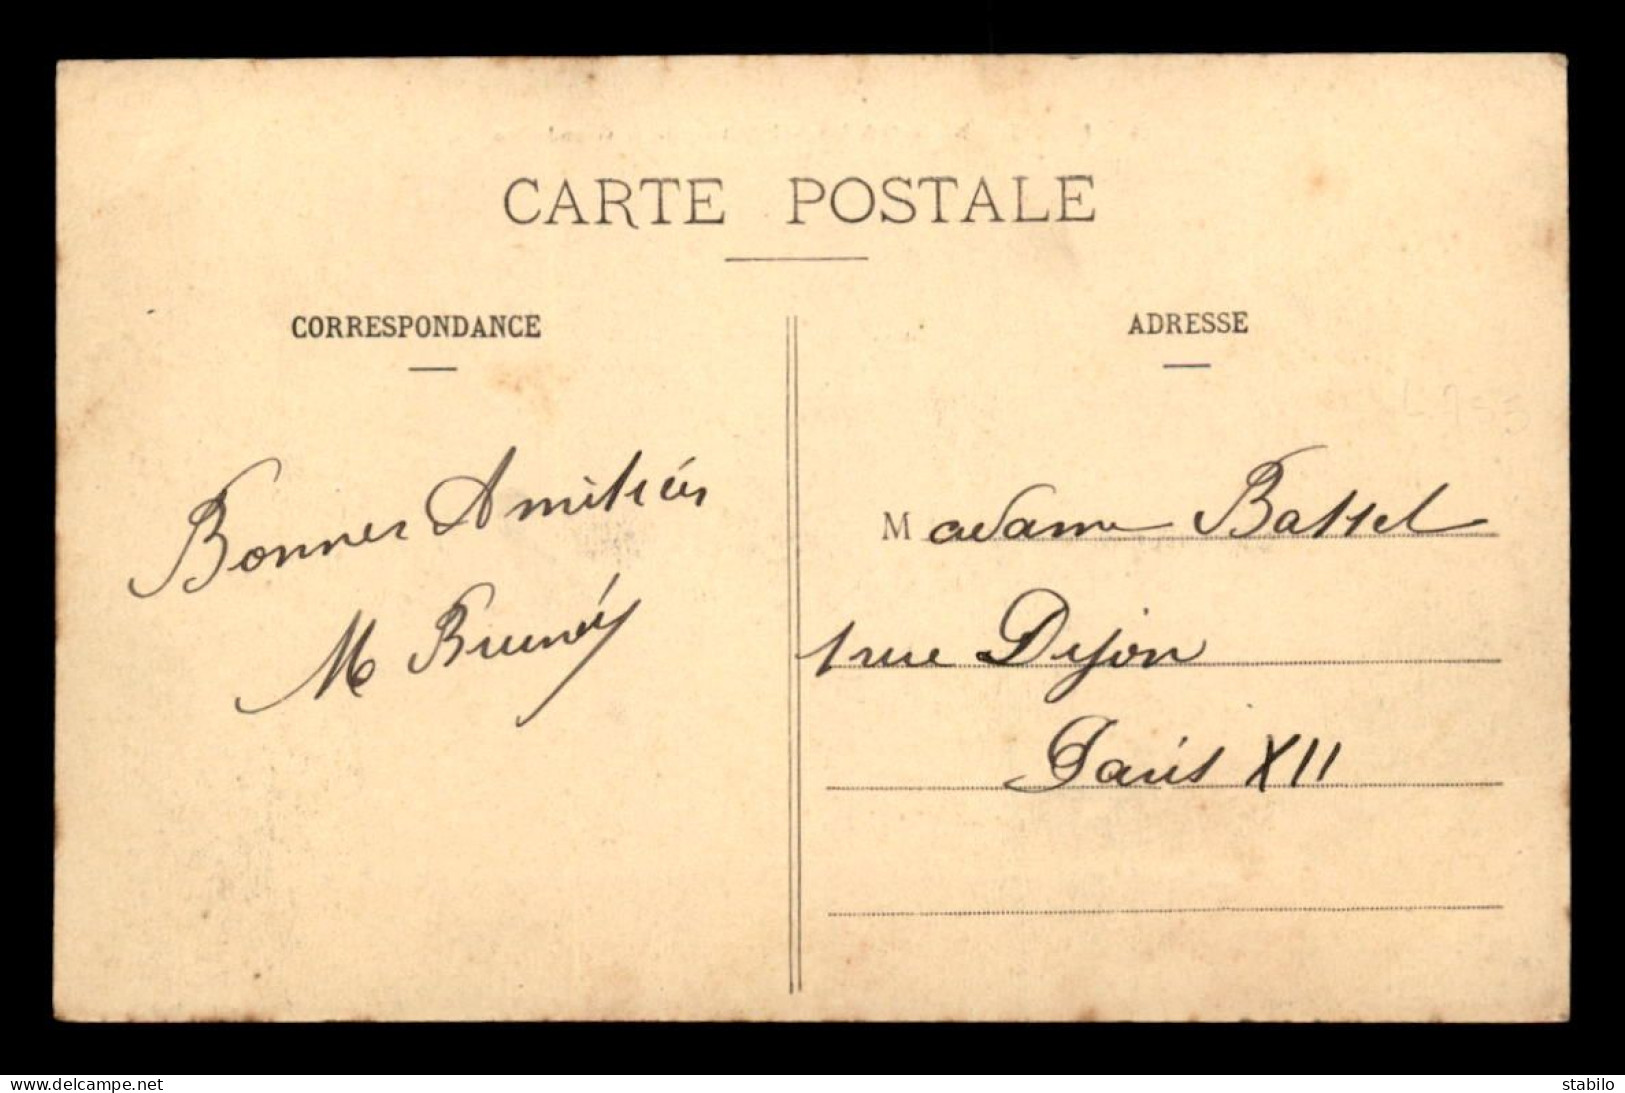 CARTE POSTALE
CORRESPONDANCE
ADRESSE
Bonnes Amitiés
M
Madame Battel
1 rue Dijon
Paris XII
www.delcampe.net
stabilo